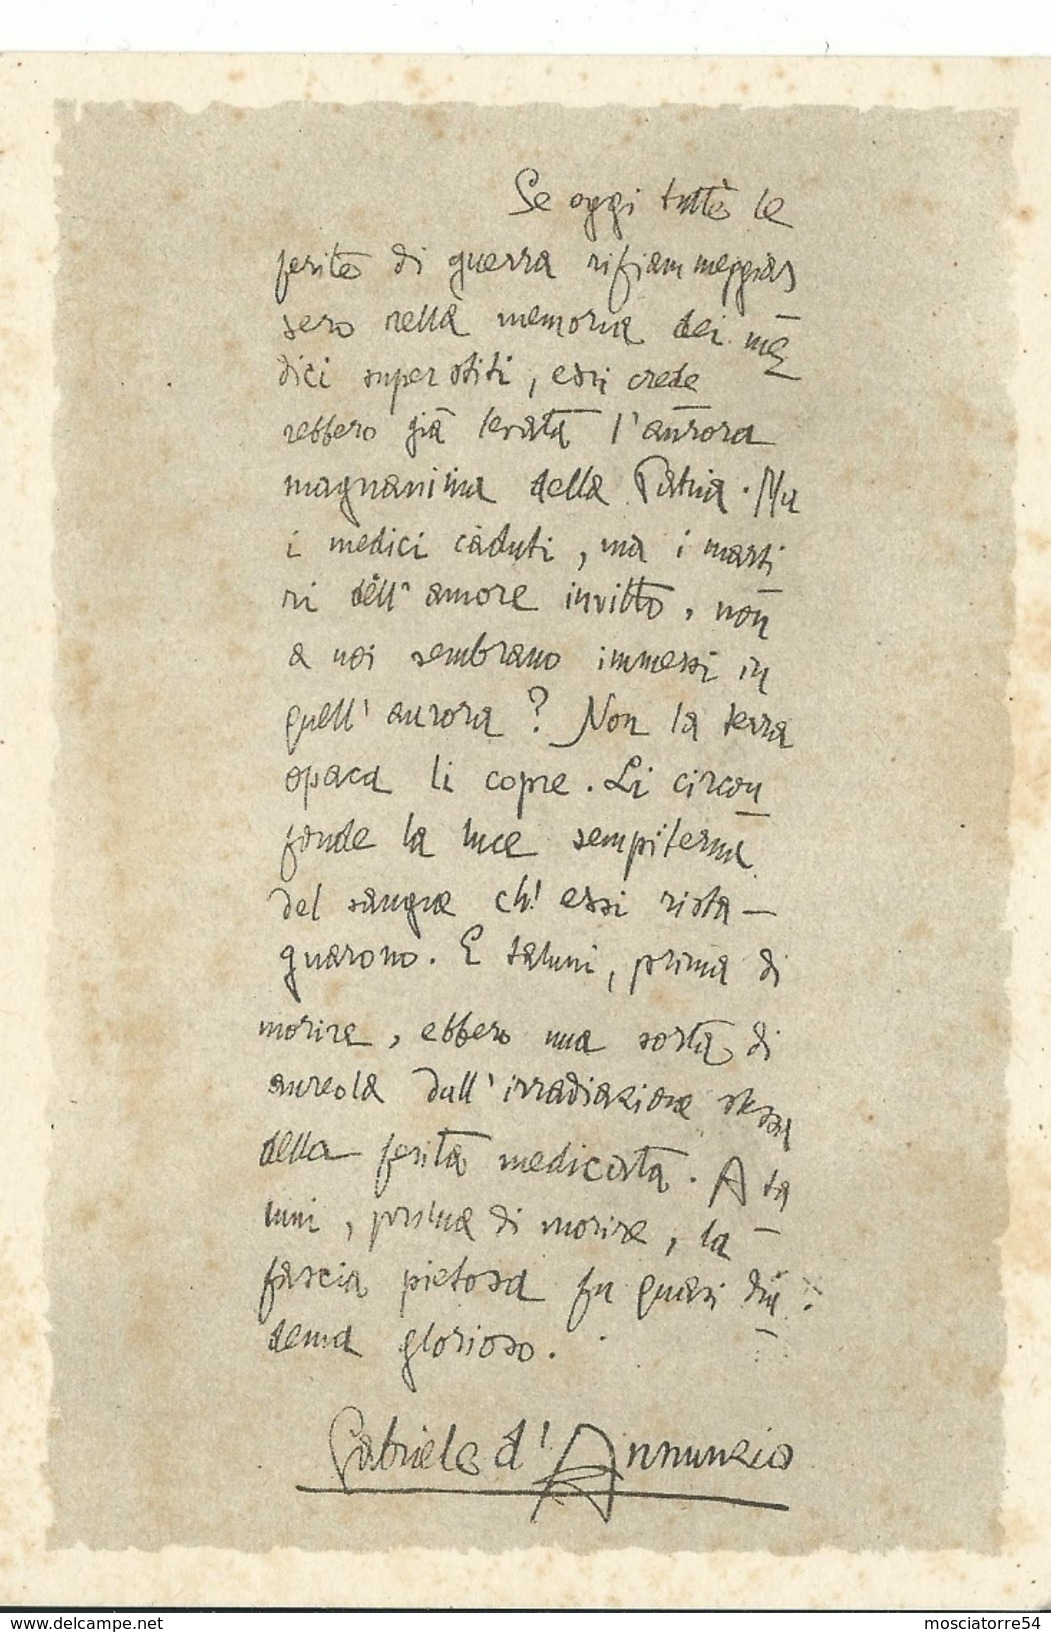 Se oggi tutte le
ferite di guerra rifiammeggias
sero nella memoria dei me
dici superstiti, essi crede
rebbero già levata l'aurora
magnanima della Patria. Ma
i medici caduti, ma i marti
ri dell'amore invitto, non
a noi sembrano immersi in
quell'aurora? Non la terra
opaca li copre. Li circon
fonde la luce sempiterna
del sangue ch'essi rista-
gnarono. E taluni, prima di
morire, ebbero una sorta di
aureola dall'irradiazione stessa
della ferita medicata. A ta
luni, prima di morire, la
fascia pietosa fu quasi dia
dema glorioso.
Gabriele d'Annunzio
www.delcampe.net
mosciatorre54